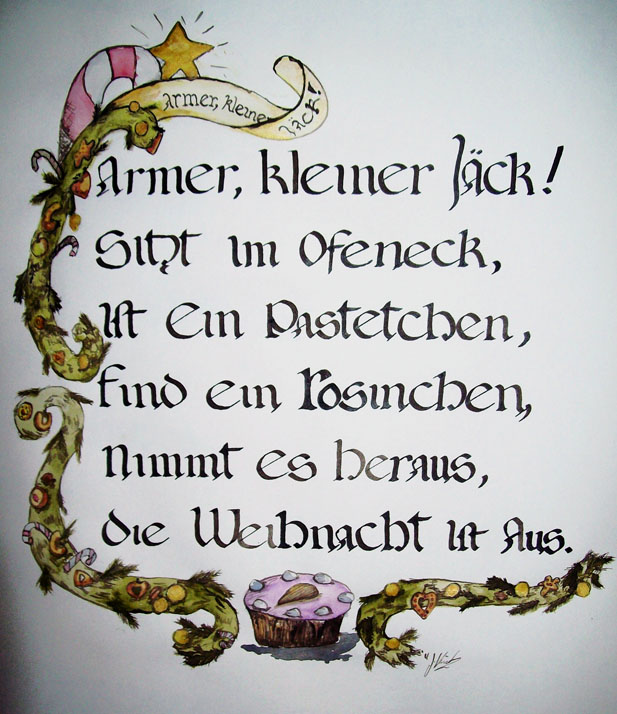 Armer, kleine Jäck!
Armer, kleiner Jäck!
Sitzt im Ofeneck,
ist ein Pastetchen,
find ein Rosinchen,
nimmt es heraus,
die Weihnacht ist aus.